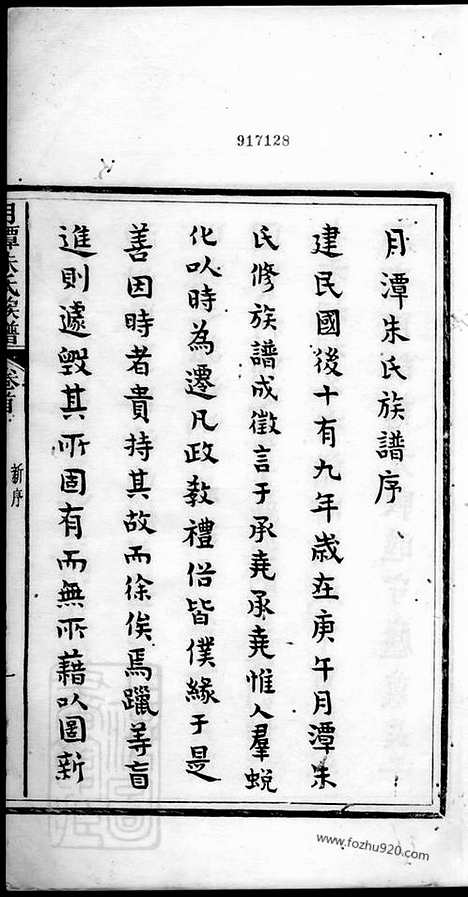 917128
月潭朱氏族譜序
建民國後十有九年歲在庚午月潭朱
氏修族譜成徵言于承堯承堯惟人羣蛻
化以時為遷凡政教禮俗皆僕緣于是
善因時者貴持其故而徐俟焉躐等盲
進則遽毀其所固有而無所藉以圖新
月潭朱氏族譜 卷首 新序 一
www.fozhu920.com